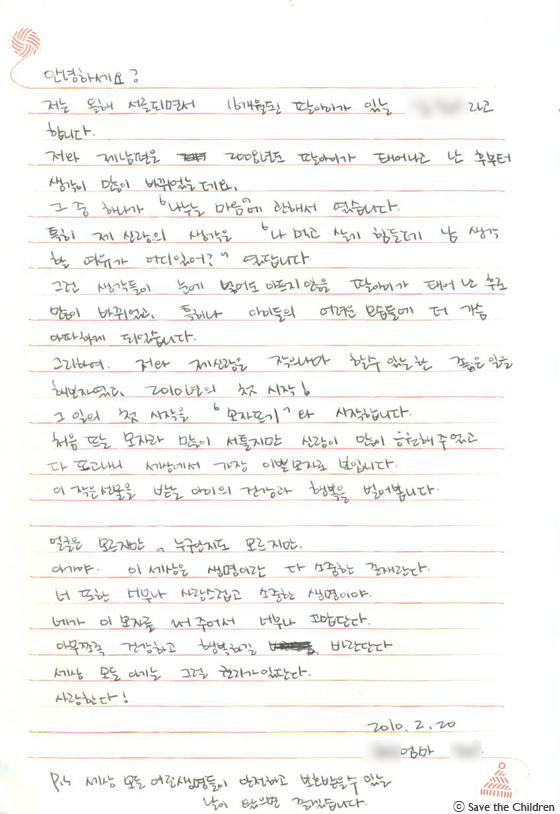 안녕하세요?
저는 올해 서른되면서 16개월된 딸아이가 있는 라고
합니다.
저와 제남편은 2008년도 딸아이가 태어나고 난 후부터
생각이 많이 바뀌었는데요,
그 중 하나가 "나누는 마음"에 관해서 였습니다.
특히 제 신랑의 생각은 "나 먹고 살기 힘든데 남 생각
할 여유가 어디있어?" 였답니다.
그런 생각들이 눈에 넣어도 아프지않을 딸아이가 태어난 후로
많이 바뀌었고, 특히나 아이들의 어려운 모습들에 더 가슴
아파하게 되었습니다.
그리하여, 저와 제신랑은 작으나마 할수있는한 좋은일을
해보자였고, 2010년의 첫 시작!
그 일의 첫 시작을 "모자뜨기"와 시작합니다.
처음 뜨는 모자라 많이 서툴지만 신랑이 많이 응원해주었고
다 뜨고나니 세상에서 가장 이쁜모자로 보입니다.
이 작은선물을 받는 아이의 건강과 행복을 빌어봅니다.
얼굴은 모르지만, 누구인지도 모르지만,
아가야. 이 세상은 생명이란 다 소중한 존재란다.
너 또한 너무나 사랑스럽고 소중한 생명이야.
네가 이 모자를 써 주어서 너무나 고맙단다.
아무쪼록 건강하고 행복하길 바란단다
세상 모든 아가는 그럴 권리가있단다.
사랑한다!
2010. 2. 20
엄마
P.s 세상 모든 어린생명들이 안전하고 보호받을수 있는
날이 왔으면 좋겠습니다.
ⓒ Save the Children